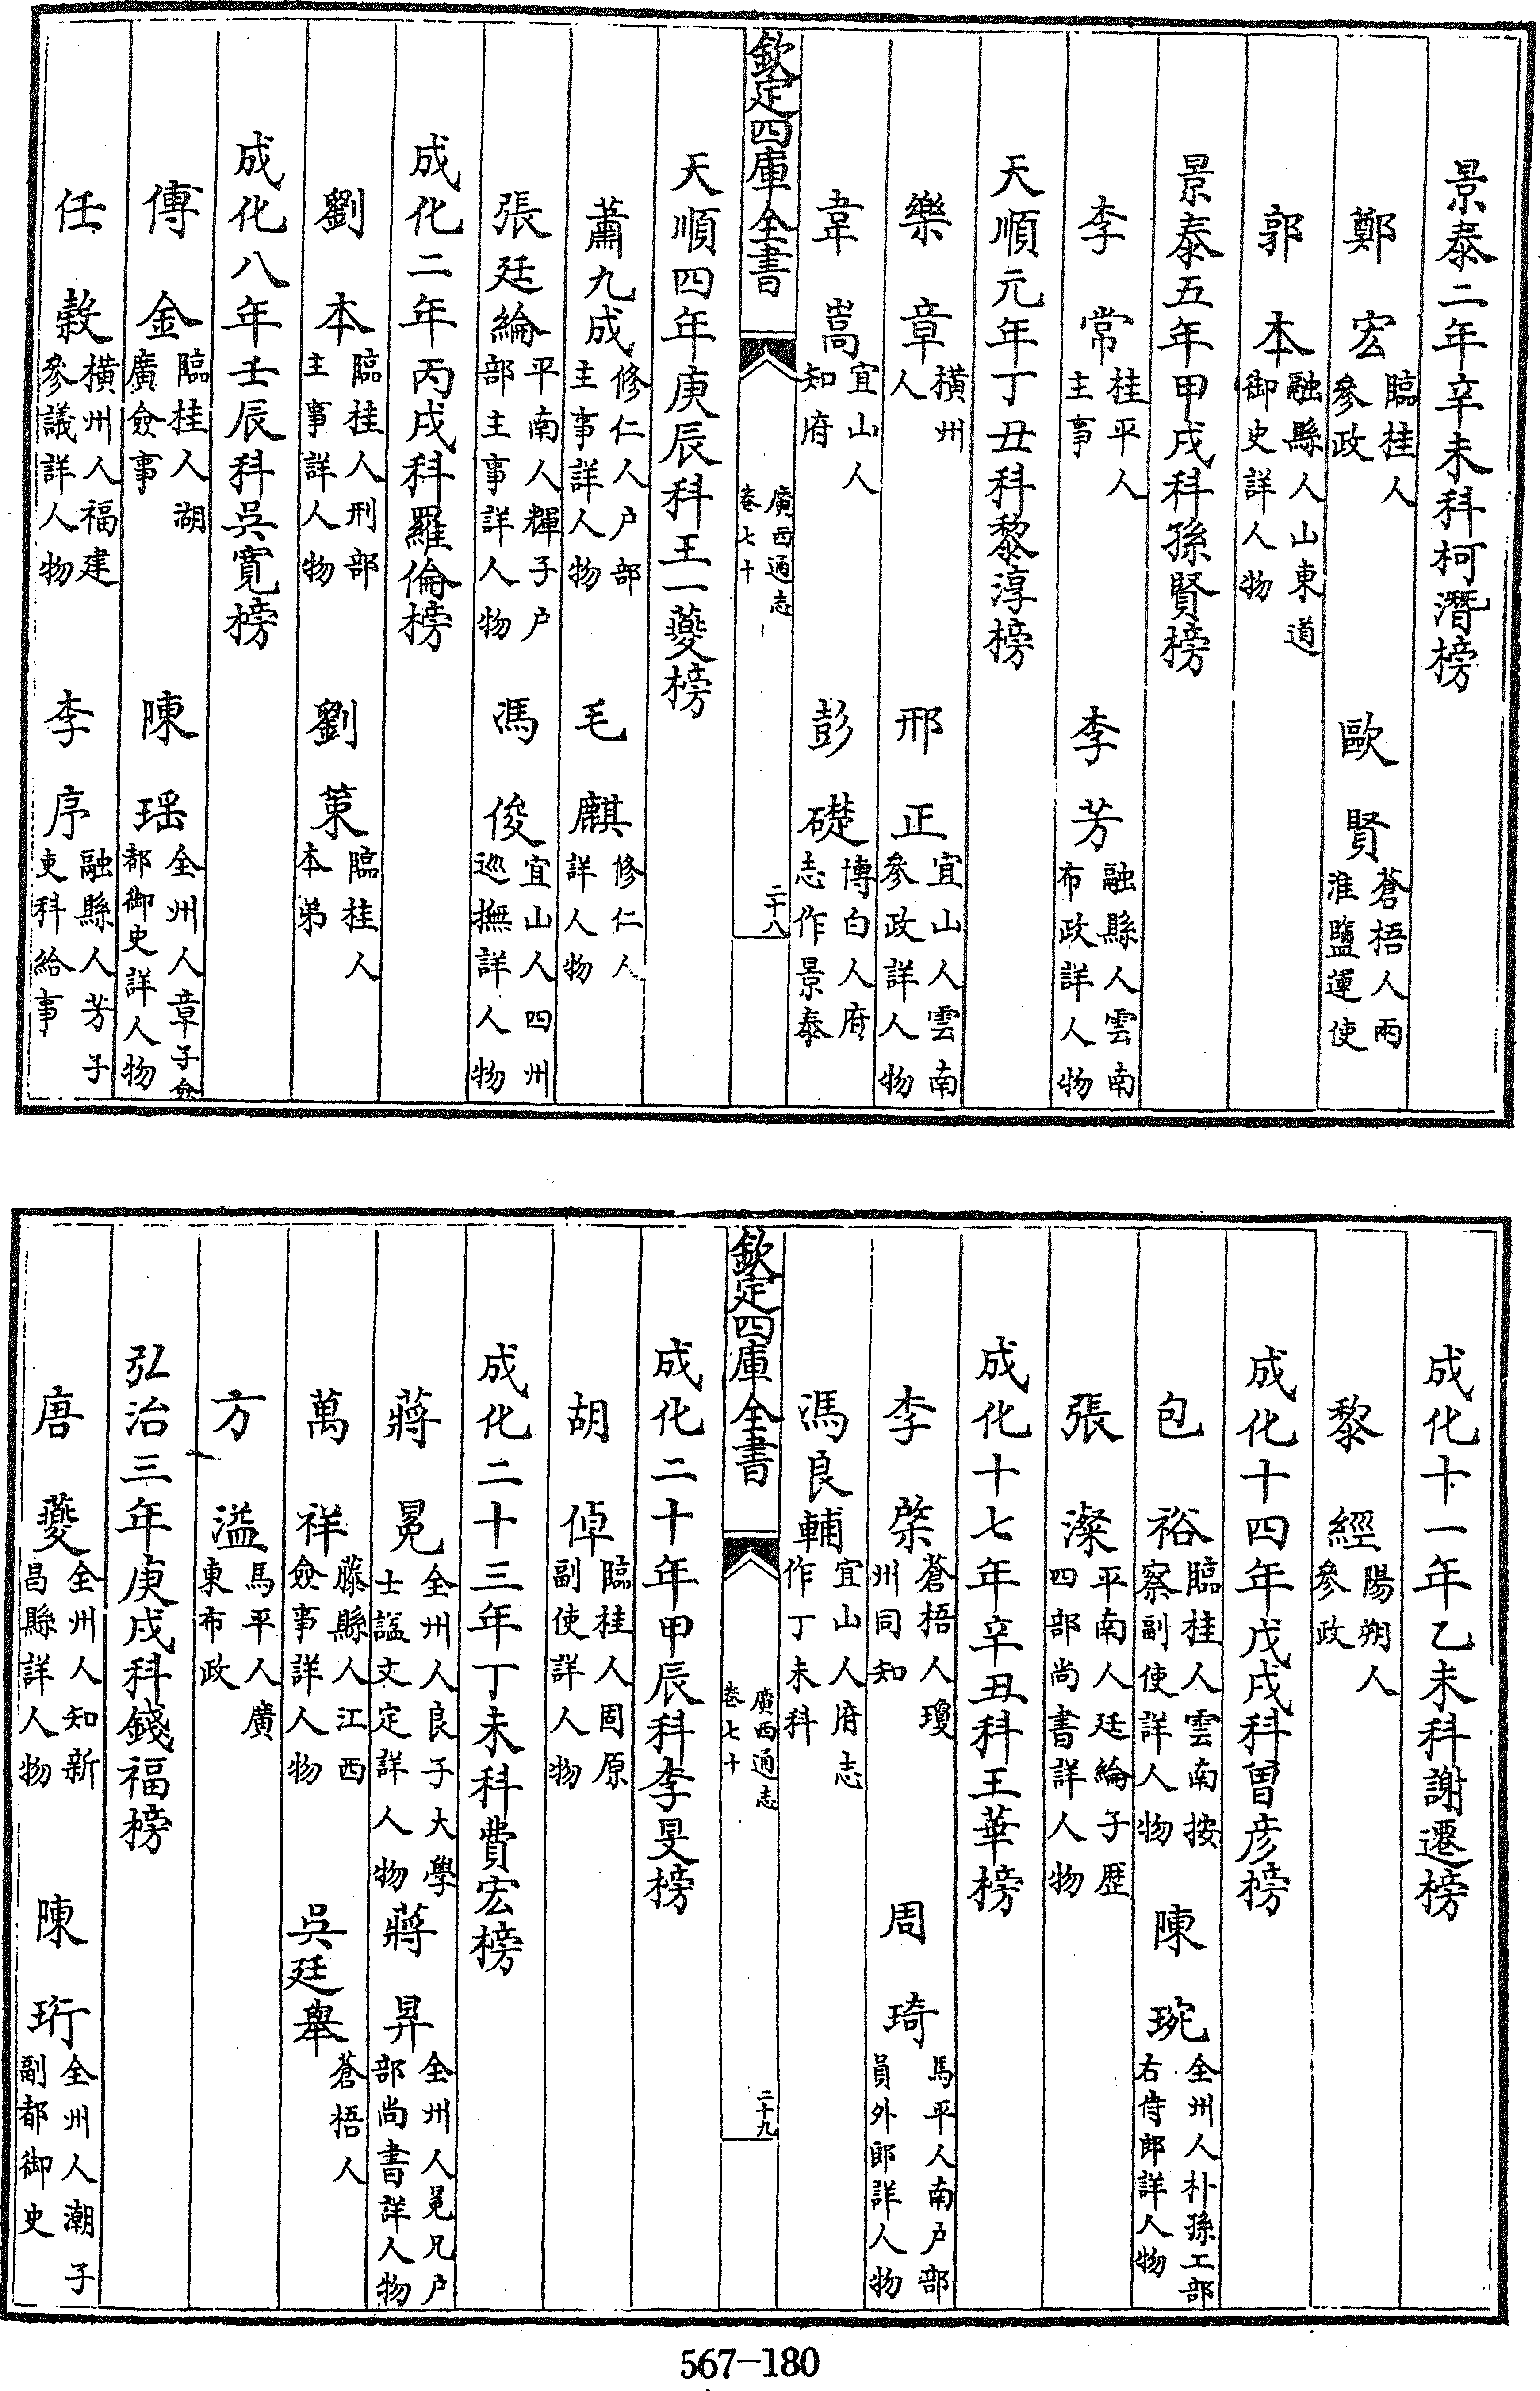 景泰二年辛未科柯潛榜
鄭宏臨桂人參政　歐賢蒼梧人兩淮鹽運使
郭本融縣人山東道御史詳人物
景泰五年甲戌科孫賢榜
李常桂平人主事　李芳融縣人雲南布政詳人物
天順元年丁丑科黎淳榜
樂章橫州人　邢正宜山人雲南參政詳人物
韋嵩宜山人知府　彭礎博白人府志作景泰
欽定四庫全書　廣西通志卷七十　二十八
天順四年庚辰科王一夔榜
蕭九成修仁人户部主事詳人物　毛麒修仁人詳人物
張廷綸平南人輝子户部主事詳人物　馮俊宜山人四州巡撫詳人物
成化二年丙戌科羅倫榜
劉本臨桂人刑部主事詳人物　劉策臨桂人本弟
成化八年壬辰科吳寛榜
傅金臨桂人湖廣僉事　陳瑶全州人章子僉都御史詳人物
任彀橫州人福建參議詳人物　李序融縣人芳子吏科給事
成化十一年乙未科謝遷榜
黎經陽朔人參政
成化十四年戊戌科曾彦榜
包裕臨桂人雲南按察副使詳人物　陳琬全州人朴孫工部右侍郎詳人物
張澯平南人廷綸子歴四部尚書詳人物
成化十七年辛丑科王華榜
李棨蒼梧人瓊州同知　周琦馬平人南户部員外郎詳人物
馮良輔宜山人府志作丁未科
欽定四庫全書　廣西通志卷七十　二十九
成化二十年甲辰科李旻榜
胡倬臨桂人固原副使詳人物
成化二十三年丁未科費宏榜
蔣冕全州人良子大學士諡文定詳人物　蔣昇全州人冕兄户部尚書詳人物
萬祥藤縣人江西僉事詳人物　吳廷舉蒼梧人
方溢馬平人廣東布政
弘治三年庚戌科錢福榜
唐夔全州人知新昌縣詳人物　陳珩全州人潮子副都御史
567-180